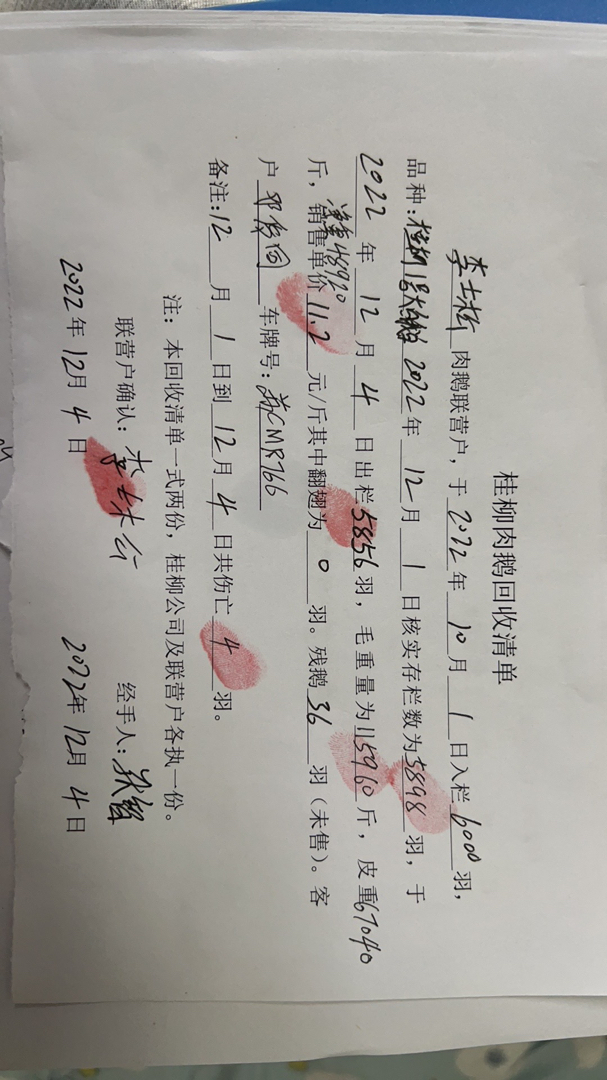 桂柳肉鹅回收清单
李士松 肉鹅联营户，于 2022 年 10 月 1 日入栏 6000 羽，
品种：桂柳1号大白鹅 2022 年 12 月 1 日核实存栏数为 5898 羽，于
2022 年 12 月 4 日出栏 5856 羽，毛重量为 115960 斤，皮重 67040
净重48920
斤，销售单价 11.2 元/斤其中翻翅为 0 羽。残鹅 36 羽（未售）。客
户 车牌号：苏CMR766
备注：12 月 1 日到 12 月 4 日共伤亡 4 羽。
注：本回收清单一式两份，桂柳公司及联营户各执一份。
联营户确认： 经手人：
2022年 12月 4 日 2022年 12月 4 日